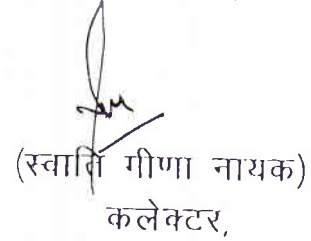 (स्वाति मीणा नायक)
कलेक्टर,